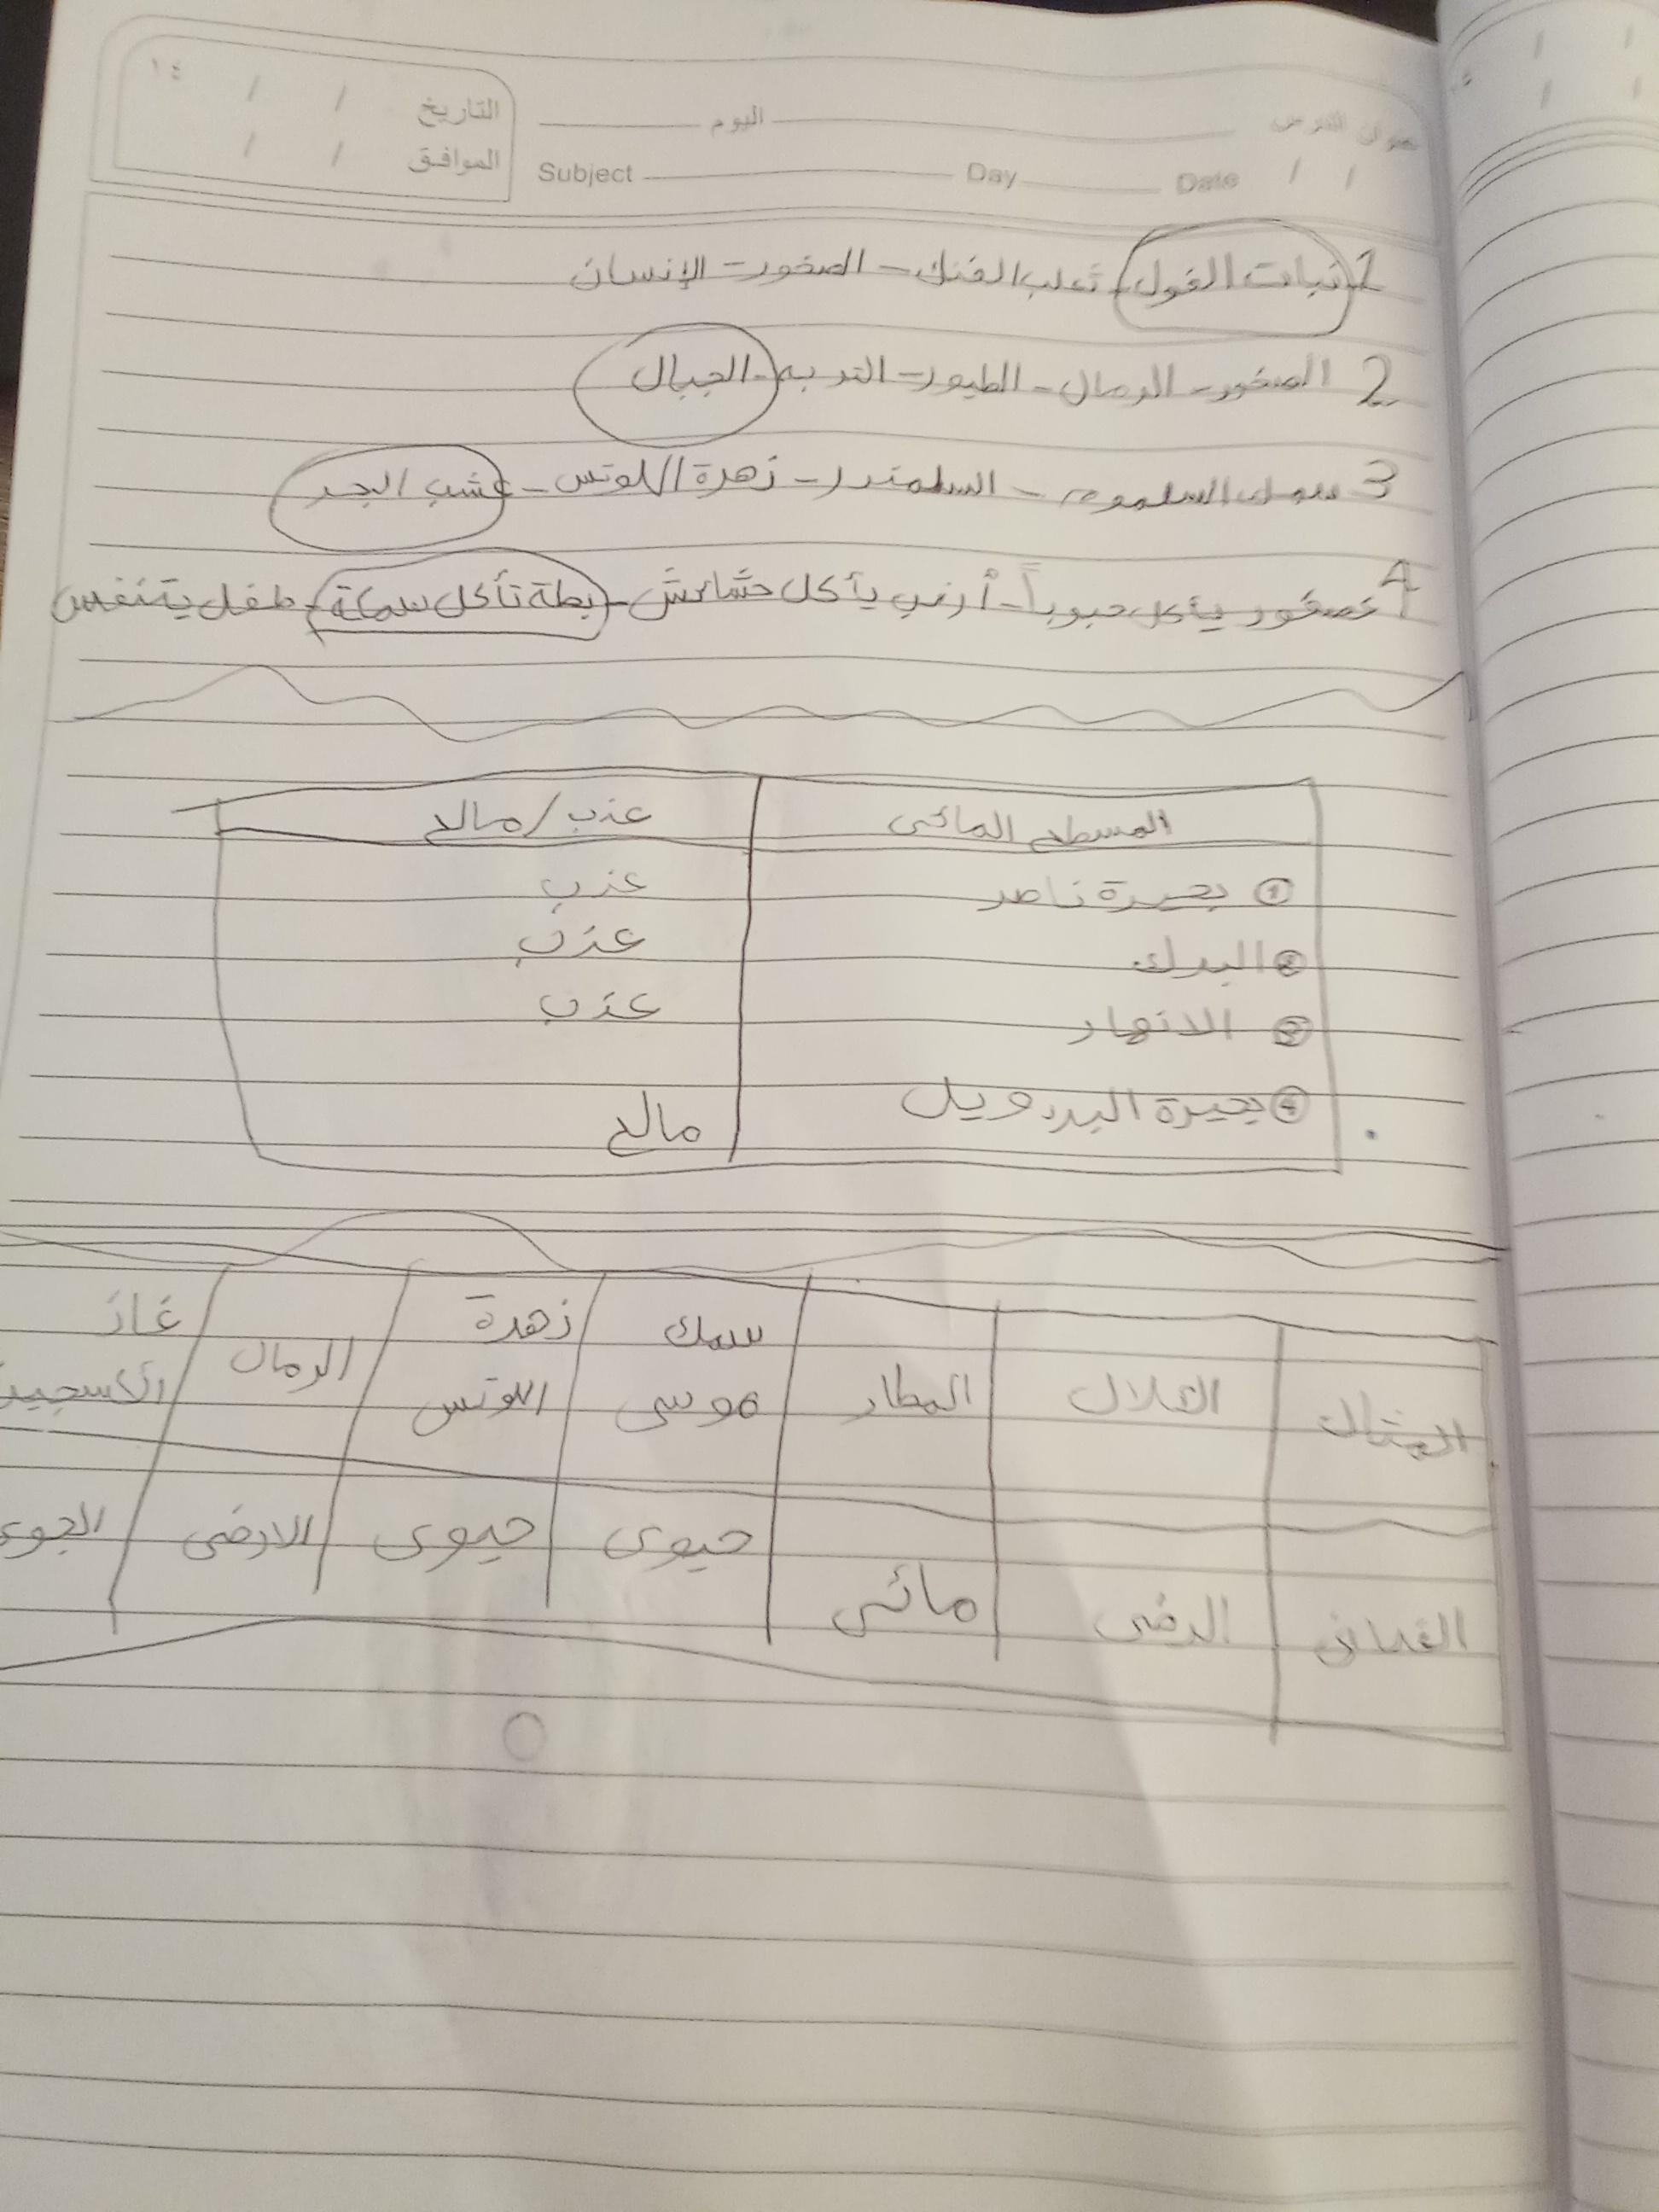 عنوان الدرس اليوم التاريخ / / ١٤
Date / / Day Subject الموافق / /
1 نبات الفول - ثعلب الفنك - الصخور - الإنسان
2 الصخور - الرمال - الطيور - التربه - الجبال
3 سمك السلمون - السلمندر - زهرة اللوتس - عشب البحر
4 عصفور يأكل حبوباً - أرنب يأكل حشائش - بطة تأكل سمكة - طفل يتنفس
المسطح المائى عذب / مالح
1 بحيرة ناصر عذب
2 البرك عذب
3 الانهار عذب
4 بحيرة البردويل مالح
المثال التلال المطار سمك موسى زهرة اللوتس الرمال غاز الأكسجين
الغلاف الرضى مائى حيوى حيوى الارضى الجوى